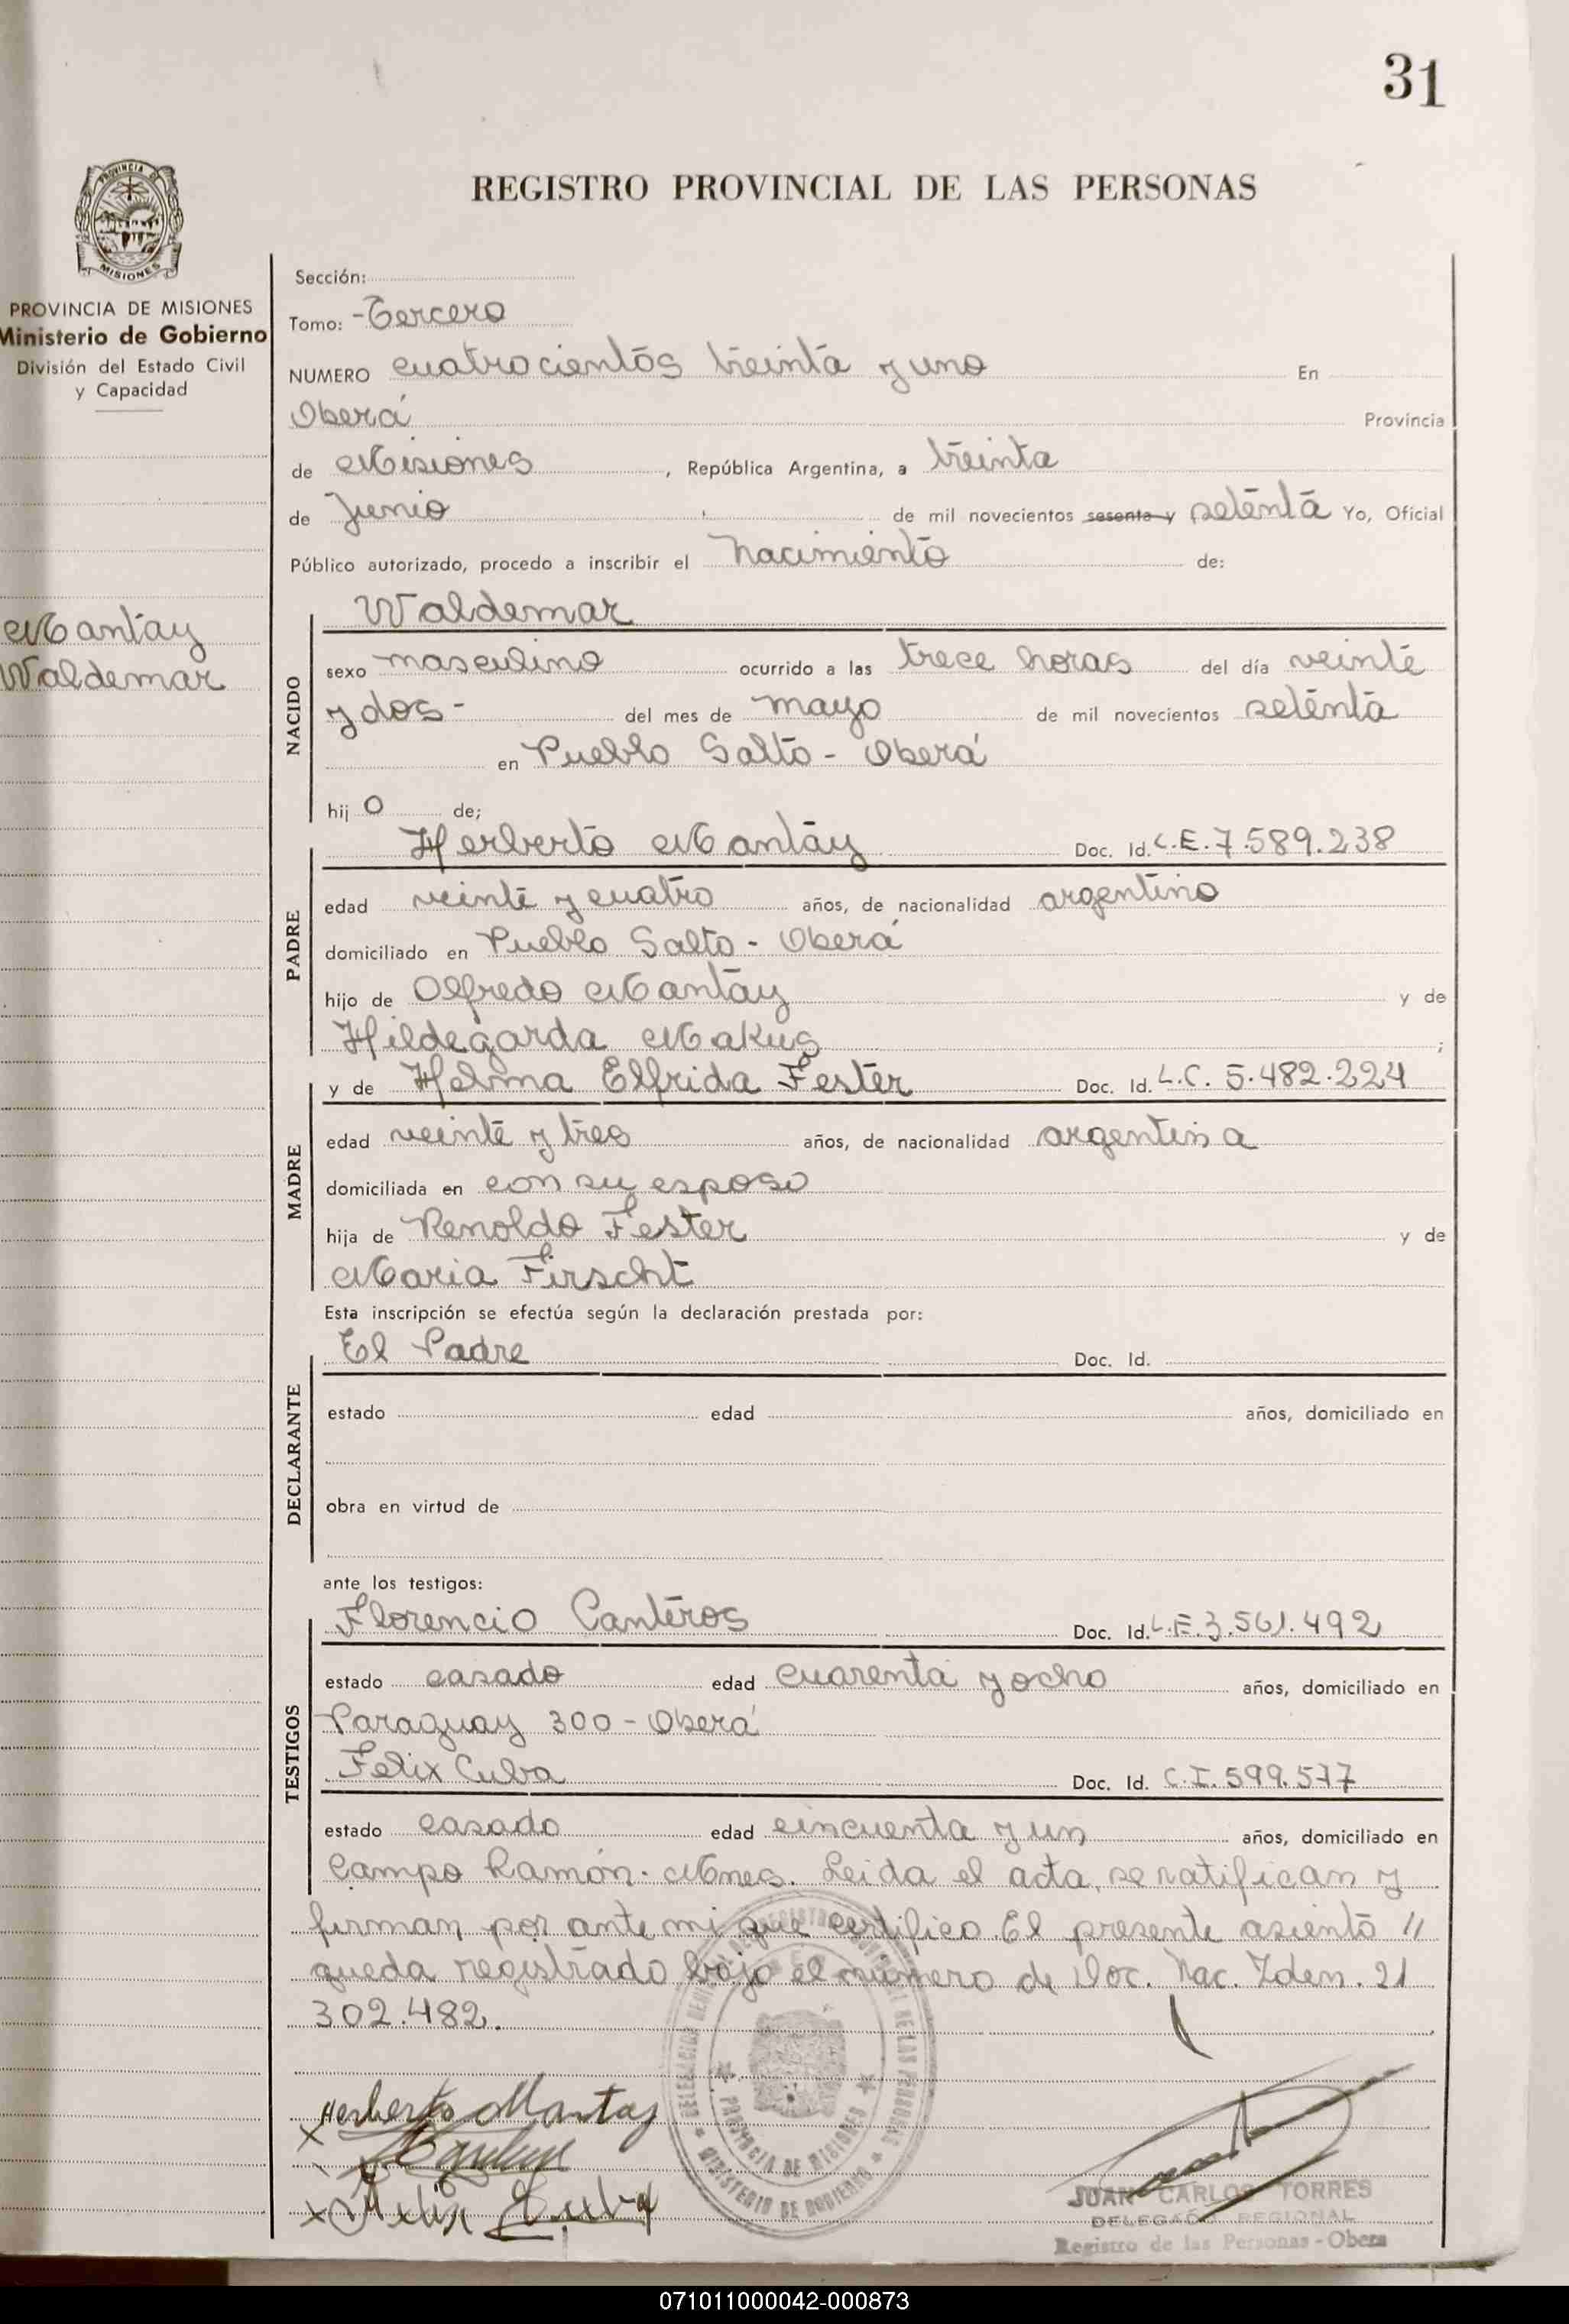 31
REGISTRO PROVINCIAL DE LAS PERSONAS
PROVINCIA DE
MISIONES
PROVINCIA DE MISIONES
Ministerio de Gobierno
División del Estado Civil
y Capacidad
Mantay
Waldemar
Sección:
Tomo: -Tercero
NUMERO cuatrocientos treinta y uno En
Oberá Provincia
de Misiones, República Argentina, a treinta
de Junio de mil novecientos sesenta y setenta Yo, Oficial
Público autorizado, procedo a inscribir el nacimiento de:
Waldemar
NACIDO
sexo masculino ocurrido a las trece horas del día veinte
y dos- del mes de mayo de mil novecientos setenta
en Pueblo Salto - Oberá
hijo de;
Herberto Mantay Doc. Id. L.E. 7.589.238
PADRE
edad veinte y cuatro años, de nacionalidad argentino
domiciliado en Pueblo Salto - Oberá
hijo de Olfredo Mantay y de
Hildegarda Makus;
y de Helma Elfrida Fester Doc. Id. L.C. 5.482.224
MADRE
edad veinte y tres años, de nacionalidad argentina
domiciliada en con su esposo
hija de Renoldo Fester y de
Maria Firscht
Esta inscripción se efectúa según la declaración prestada por:
El Padre Doc. Id.
DECLARANTE
estado edad años, domiciliado en
obra en virtud de
ante los testigos:
Florencio Canteros Doc. Id. L.E. 3.561.492
TESTIGOS
estado casado edad cuarenta y ocho años, domiciliado en
Paraguay 300 - Oberá
Felix Cuba Doc. Id. C.I. 599.577
estado casado edad cincuenta y un años, domiciliado en
Campo Ramón. Mnes. Leida el acta, se ratifican y
firman por ante mi que certifico. El presente asiento //
queda registrado bajo el número de Doc. Nac. Iden. 21
302.482.
Herberto Mantay
Felix Cuba
PROVINCIA DE MISIONES
MINISTERIO DE GOBIERNO
JUAN CARLOS TORRES
DELEGADO REGIONAL
Registro de las Personas - Obera
071011000042-000873